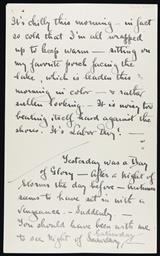 It's chilly this morning - in fact
so cold that I'm all wrapped
up to keep warm - sitting on
my favorite porch facing the
Lake, which is leaden this
morning in color - & rather
sullen looking - It is noisy too
beating itself hard against the
shore. It's Labor Day! -
Yesterday was a Day
of Glory - After a night of
storms the day before - Autumn
seems to have set in with a
vengeance - Suddenly.
You should have been with me
Saturday
to see Night of Sunday